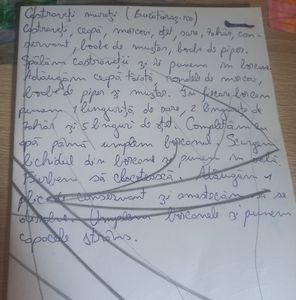 Castraveți murați (Bucătaras.ro)
Castraveți, ceapă, morcov, oțet, sare, zahăr, con-
servant, boabe de muștar, boabe de piper.
Spălăm castraveții și îi punem în borcane
Adăugăm ceapă tăiată, rondele de morcov,
boabe de piper și muștar. În fiecare borcan
punem 1 linguriță de sare, 2 lingurițe de
zahăr și 5 linguri de oțet. Completăm cu
apă până umplem borcanul. Scurgem
lichidul din borcane și punem în oală
Fierbem să clocotească. Adăugăm
plic de conservant și amestecăm să se
dizolve. Umplem borcanele și punem
capacele strâns.